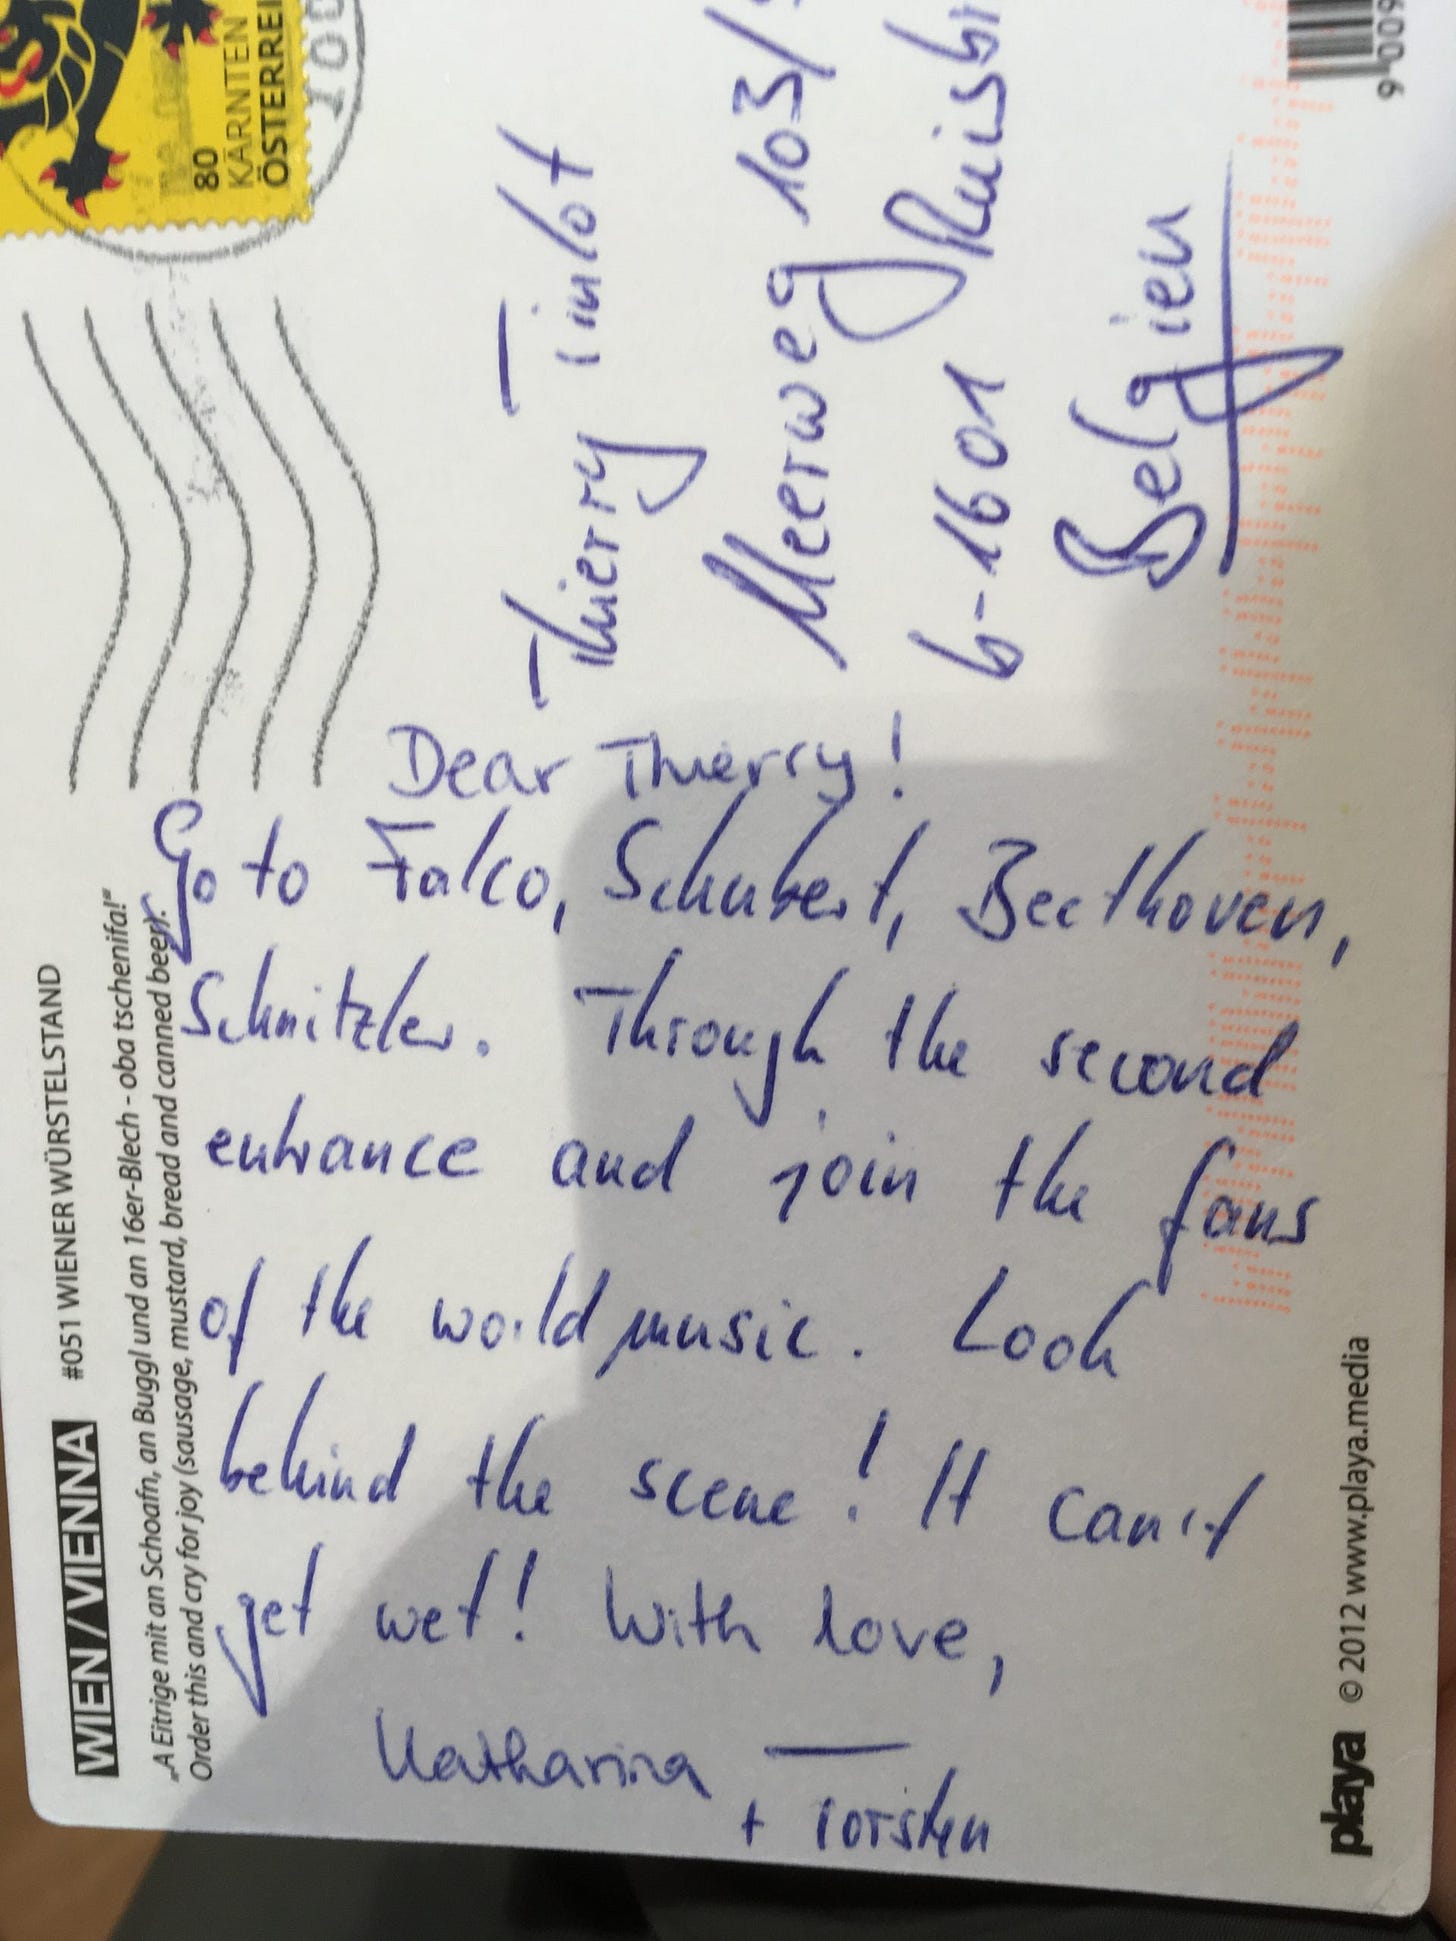 WIEN / VIENNA #051 WIENER WÜRSTELSTAND
„A Eitrige mit an Schoafn, an Buggl und an 16er-Blech - oba tschenifa!"
Order this and cry for joy (sausage, mustard, bread and canned beer).
Dear Thierry!
Go to Falco, Schubert, Beethoven,
Schnitzler. Through the second
entrance and join the fans
of the world music. Look
behind the scene! It can't
get wet! With love,
Katharina
+ Torsten
80
KÄRNTEN
ÖSTERREI
100
Thierry Tinlot
Meerweg 103/
b-1601 Ruisb
Belgien
playa © 2012 www.playa.media
9 009